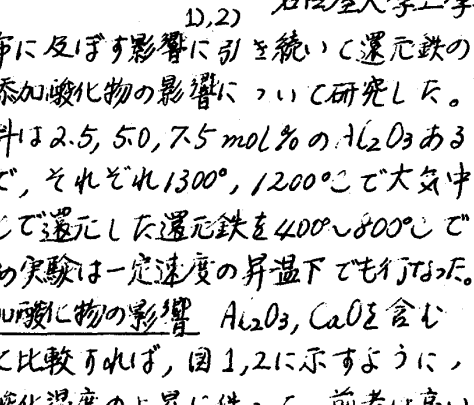 1),2)
布に及ぼす影響に引き続いて還元鉄の
添加酸化物の影響について研究した。
料は2.5, 5.0, 7.5 mol%のAl2O3ある
で, それぞれ1300°, 1200°Cで大気中
で還元した還元鉄を400°~800°Cで
実験は一定速度の昇温下でも行なった。
加酸化物の影響 Al2O3, CaOを含む
と比較すれば, 図1,2に示すように,
酸化温度の上昇に伴って, 前者は高い